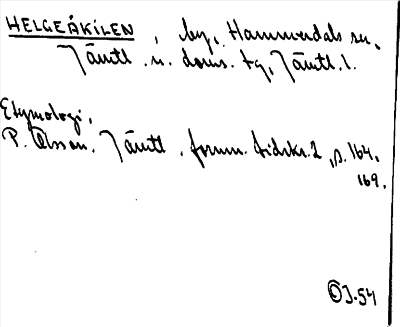 HELGEÅKILEN, by, Hammerdals sn,
Jämtl. n. doms. tg, Jämtl. l.
Etymologi,
P. Olsson. Jämtl. fornm. tidskr. 2, s. 164,
169.
OJ.54